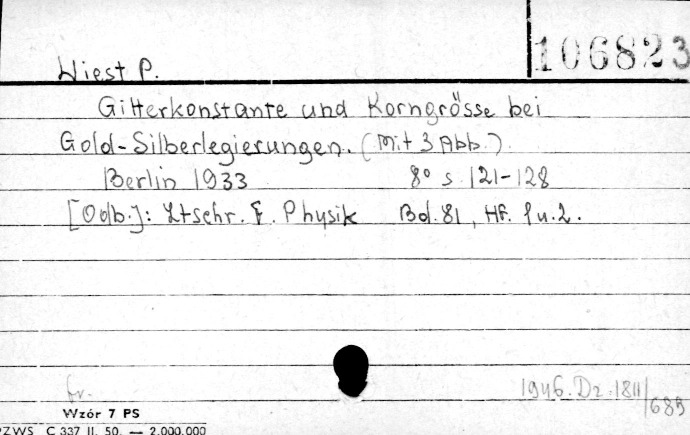 106823
Wiest P.
Gitterkonstante und Korngrösse bei
Gold-Silberlegierungen. (Mit 3 Abb.)
Berlin 1933 8° s. 121-128
[Odb.]: Ztschr. f. Physik Bd. 81, Hf. 1 u. 2.
fr.
1946. Dz. 1811/689
Wzór 7 PS
PZWS C 337 II. 50. — 2.000.000